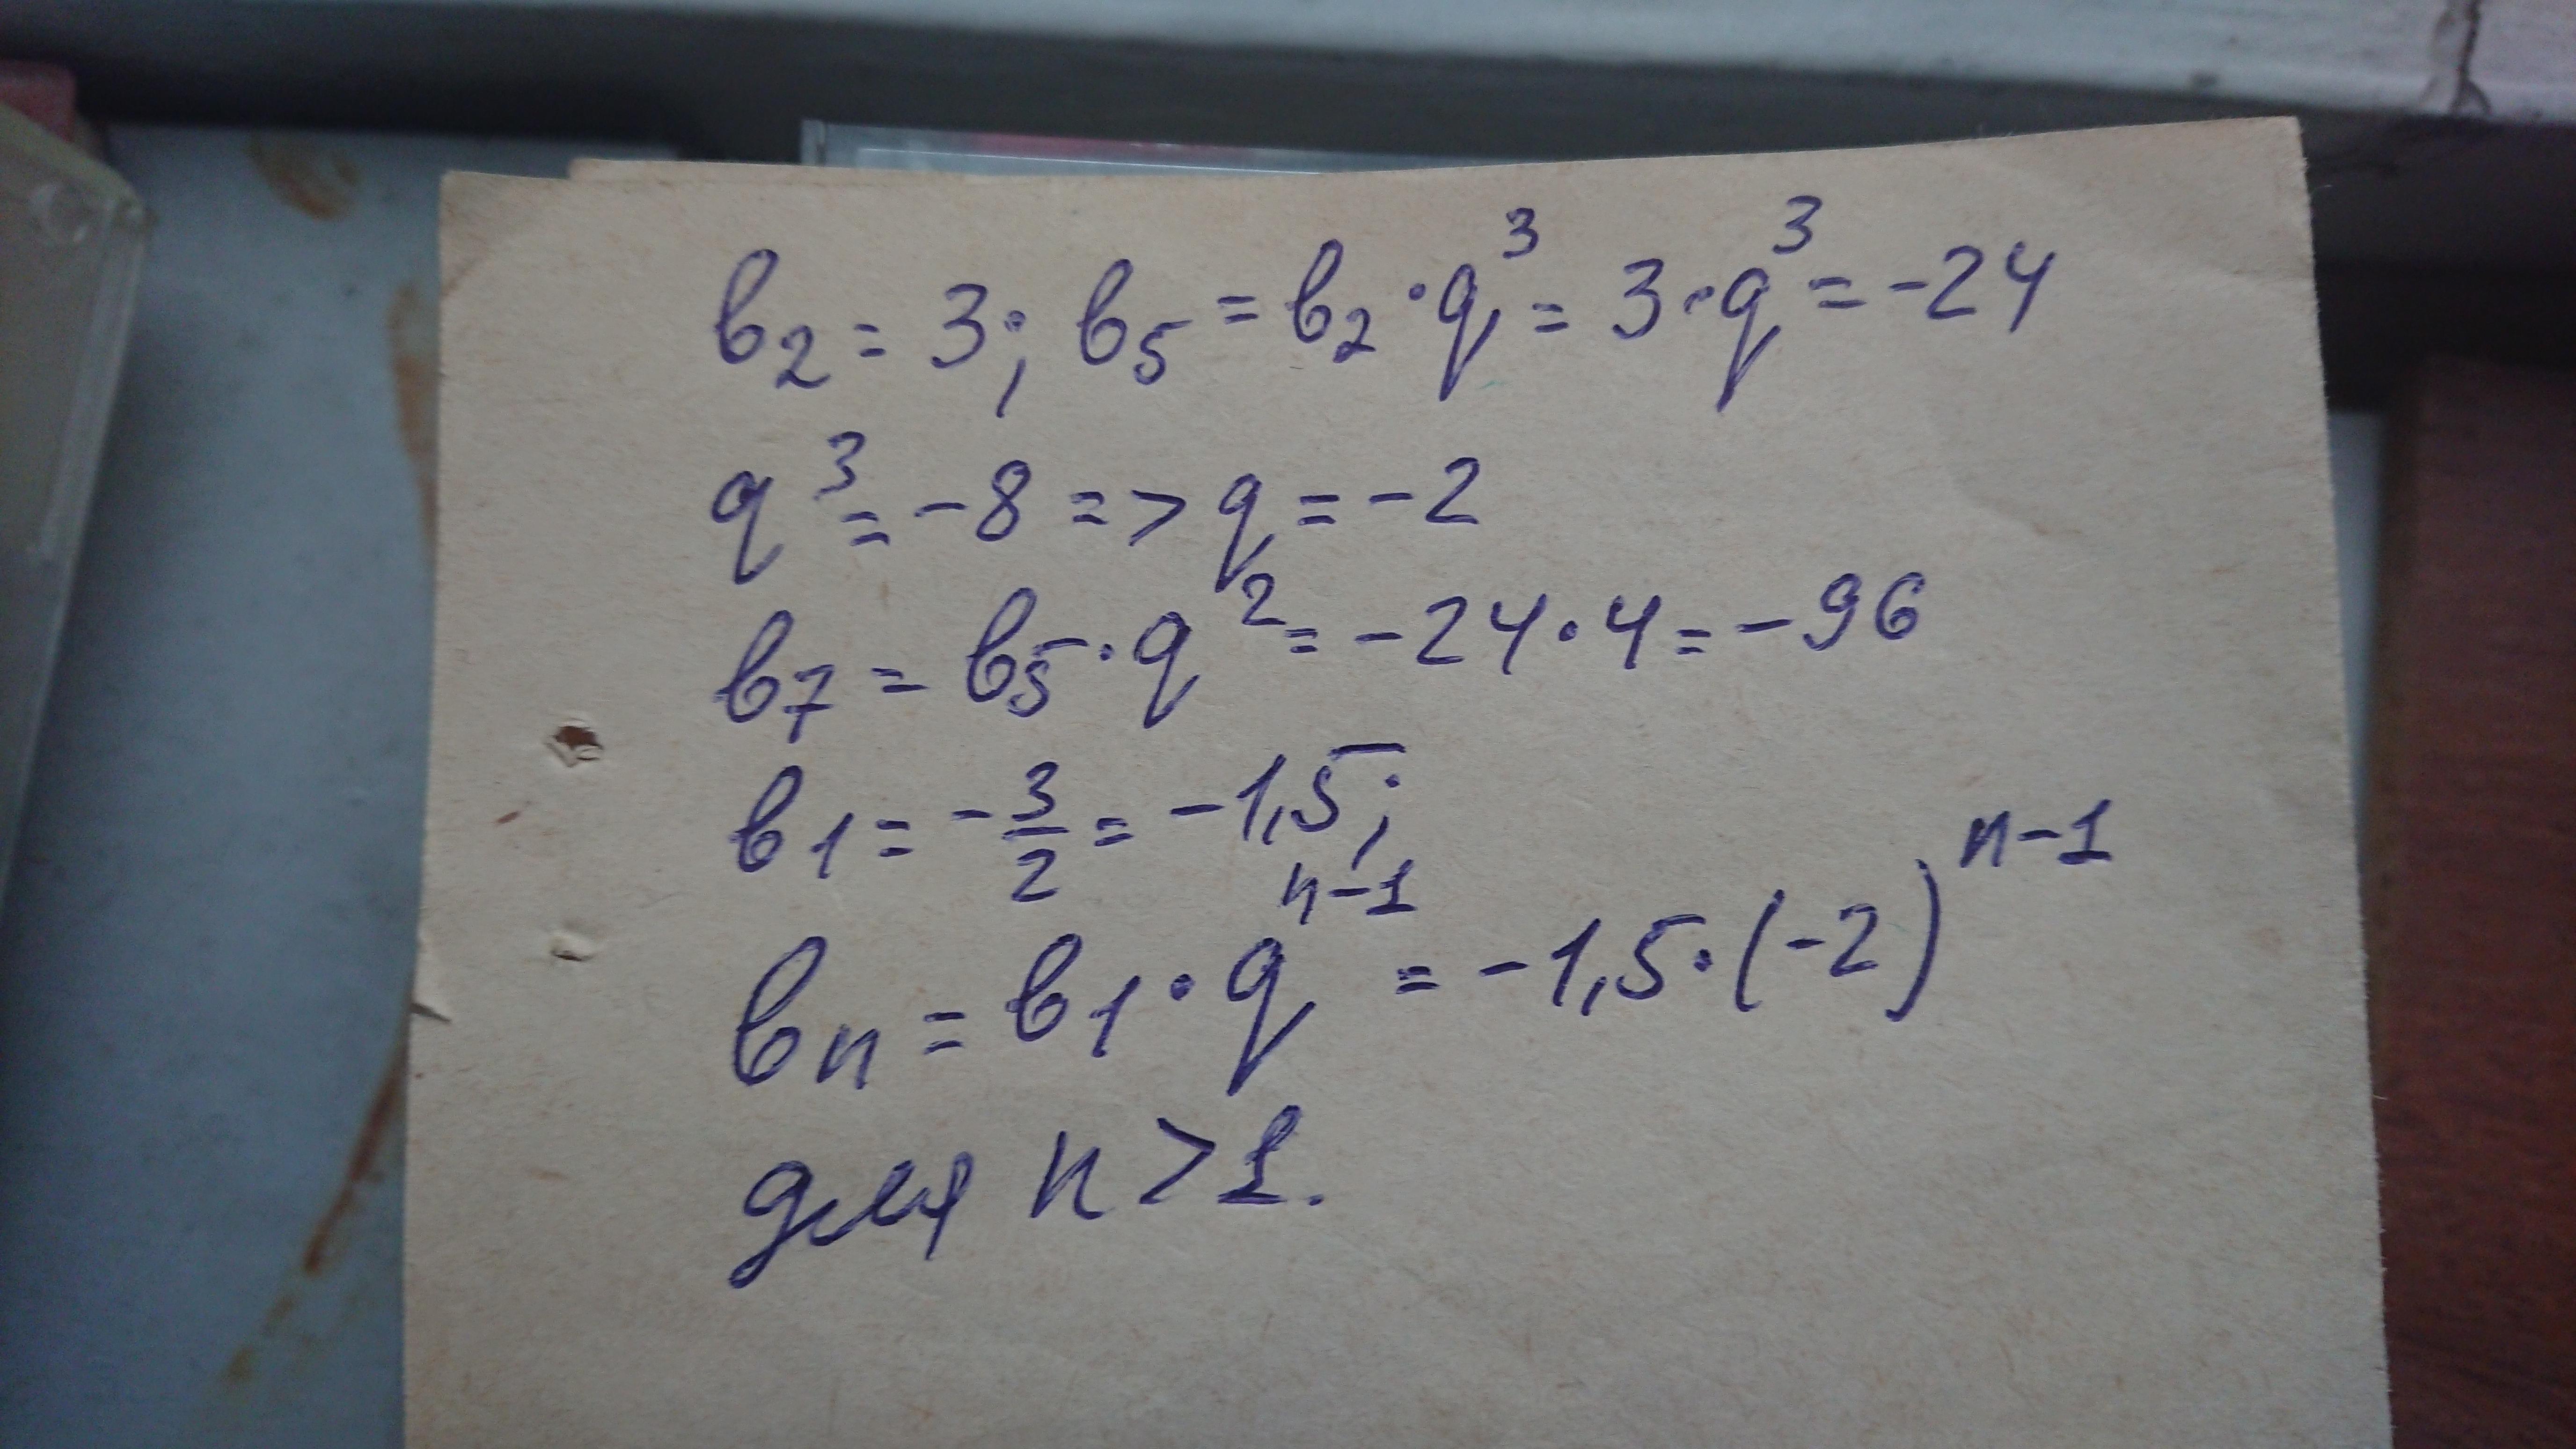 b₂ = 3; b₅ = b₂ · q³ = 3 · q³ = -24
q³ = -8 => q = -2
b₇ = b₅ · q² = -24 · 4 = -96
b₁ = -3/2 = -1,5;
bₙ = b₁ · qⁿ⁻¹ = -1,5 · (-2)ⁿ⁻¹
для n > 1.